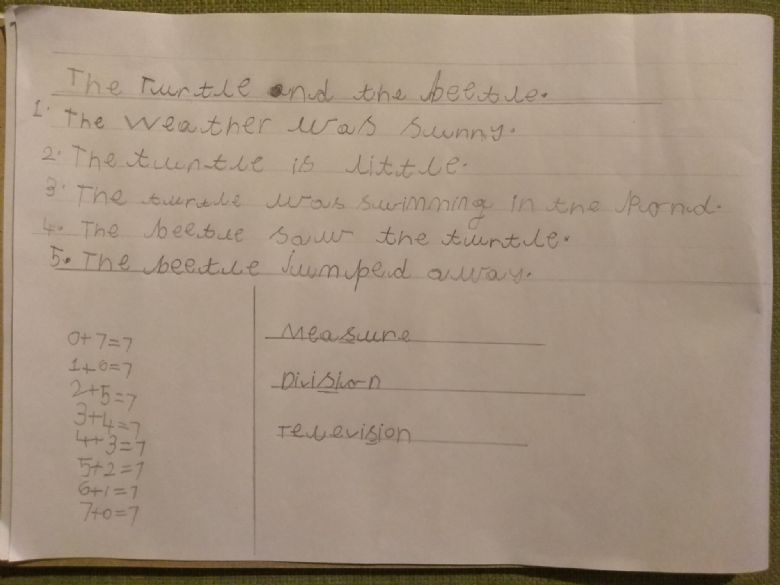 The Turtle and the beetle.
1. The weather was sunny.
2. The turtle is little.
3. The turtle was swimming in the Pond.
4. The beetle saw the turtle.
5. The beetle jumped away.
0+7=7
1+6=7
2+5=7
3+4=7
4+3=7
5+2=7
6+1=7
7+0=7
Measure
Division
Television